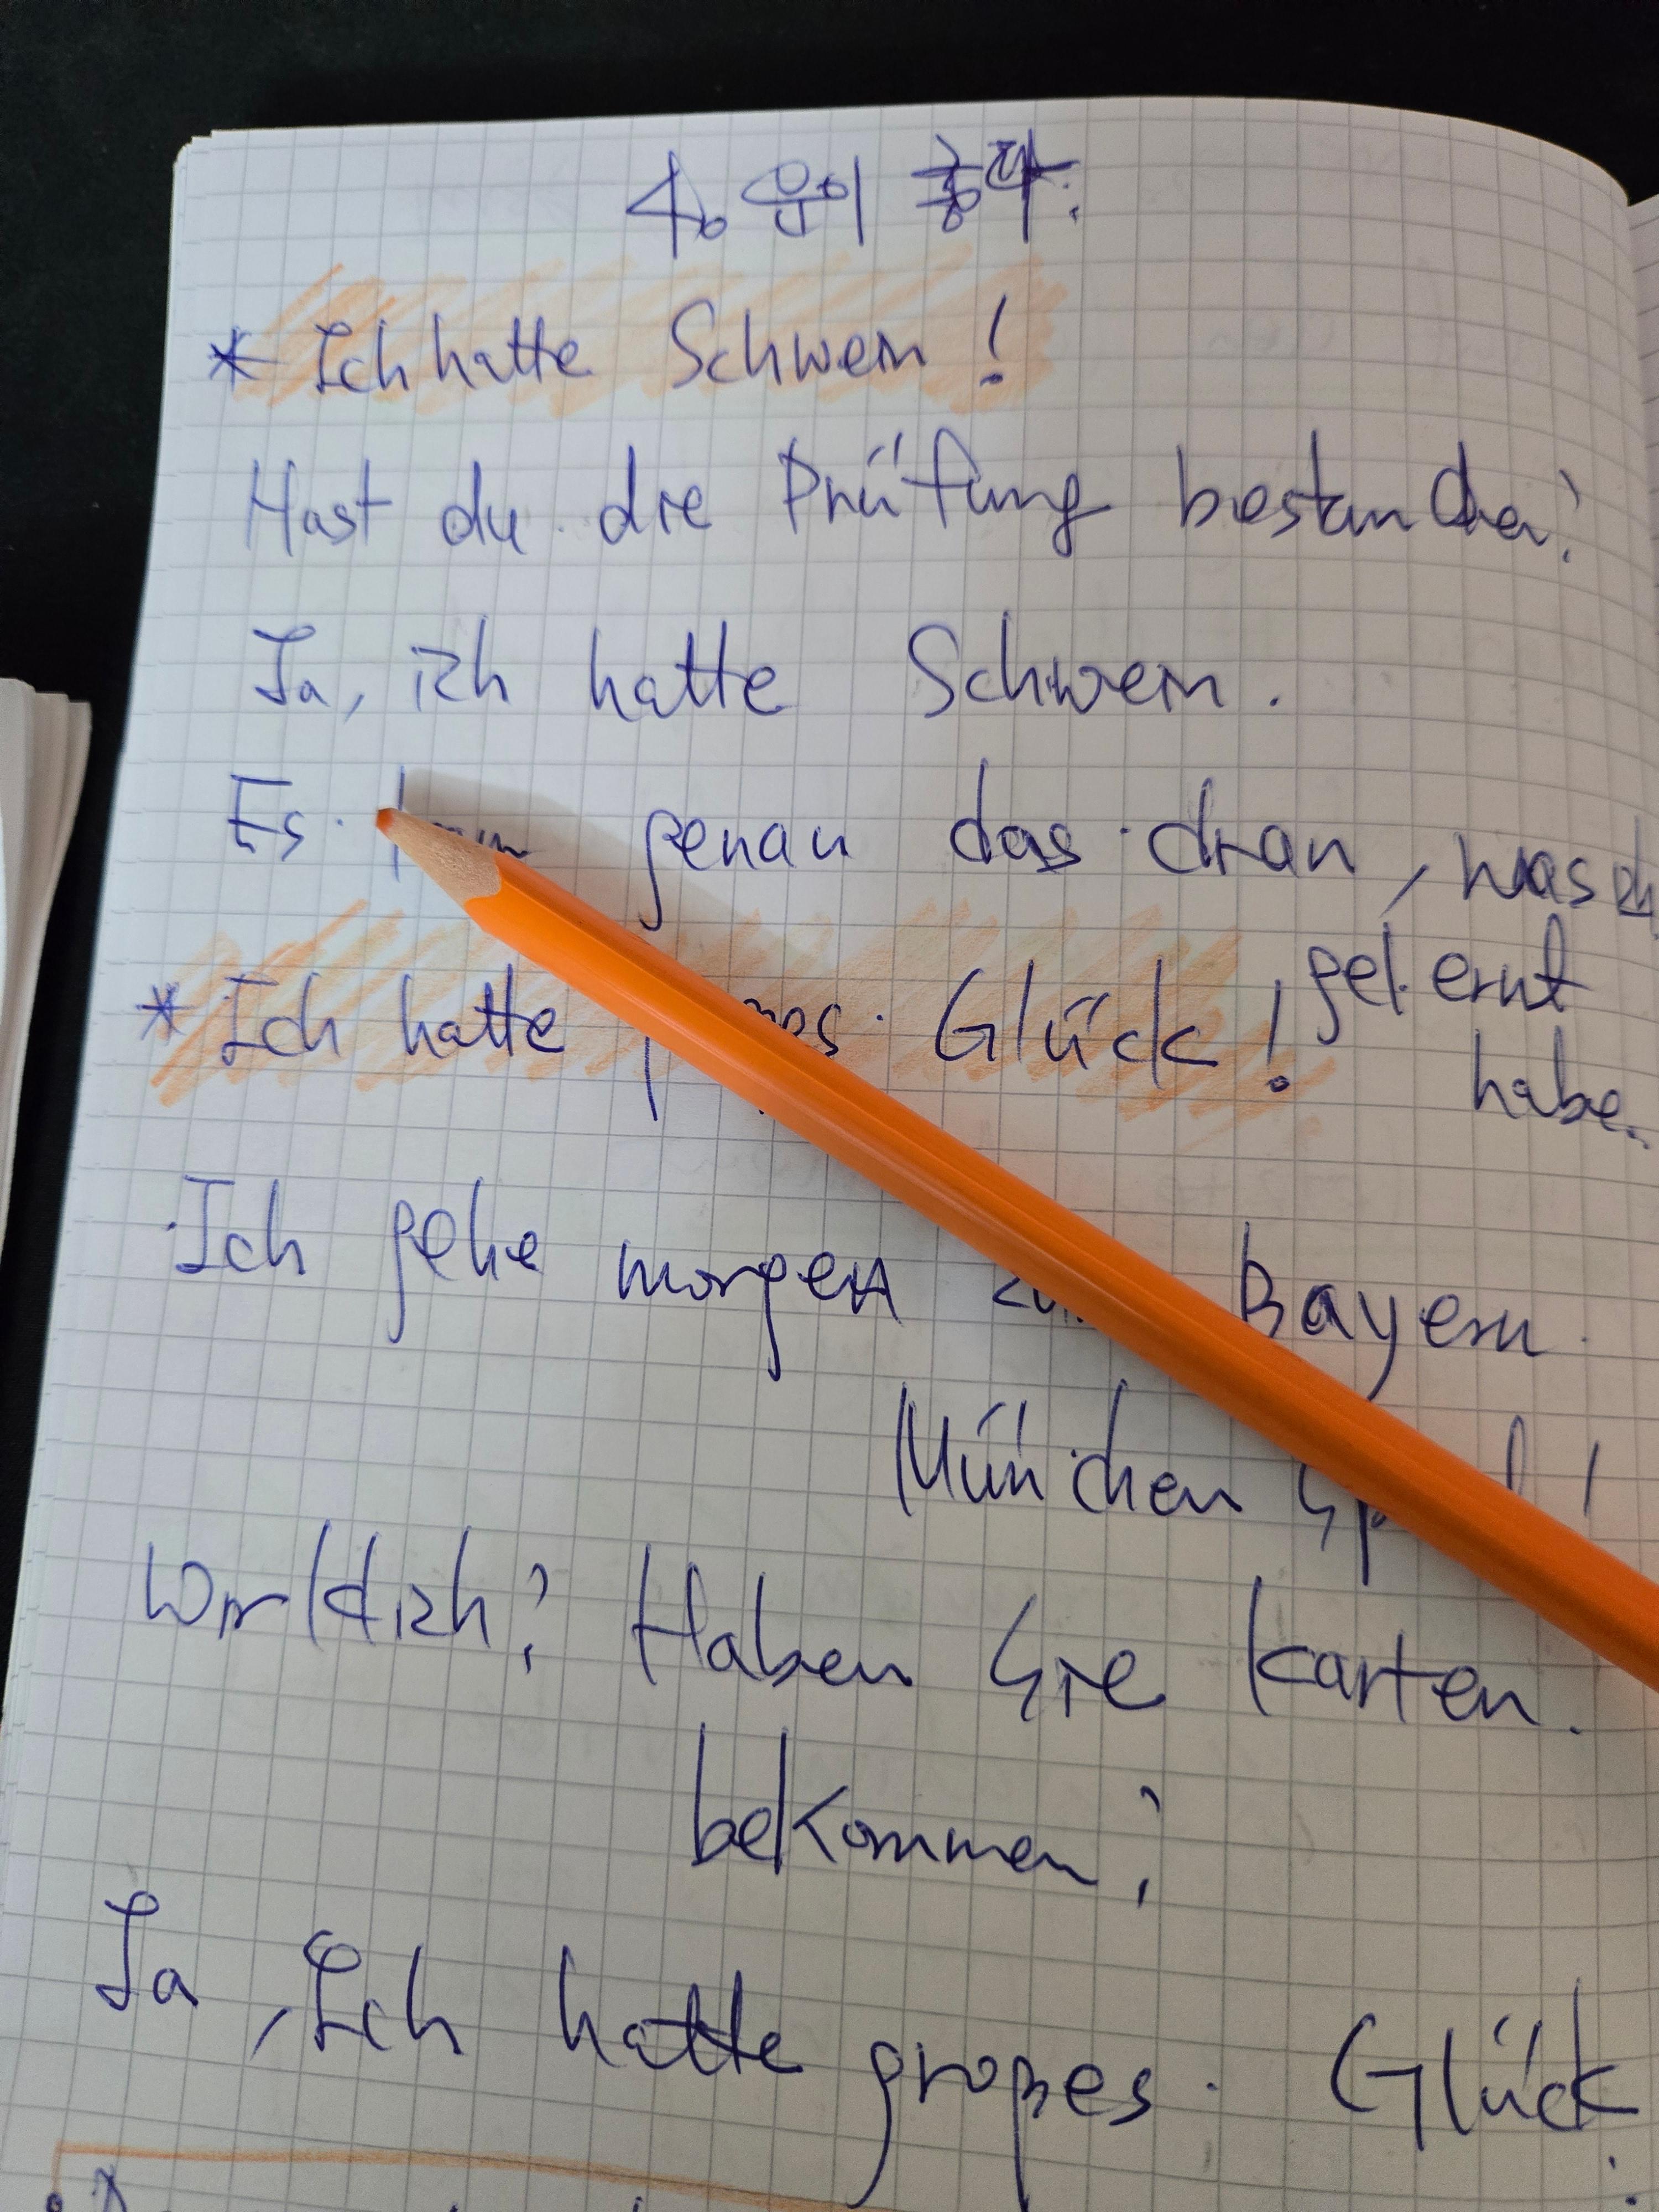 * Ich hatte Schwein!
Hast du die Prüfung bestanden?
Ja, ich hatte Schwein.
Es genau das dran, was ich
gelernt
habe.
* Ich hatte Glück!
Ich gehe morgen Bayern
München
Wirklich? Haben Sie Karten
bekommen?
Ja, Ich hatte großes Glück